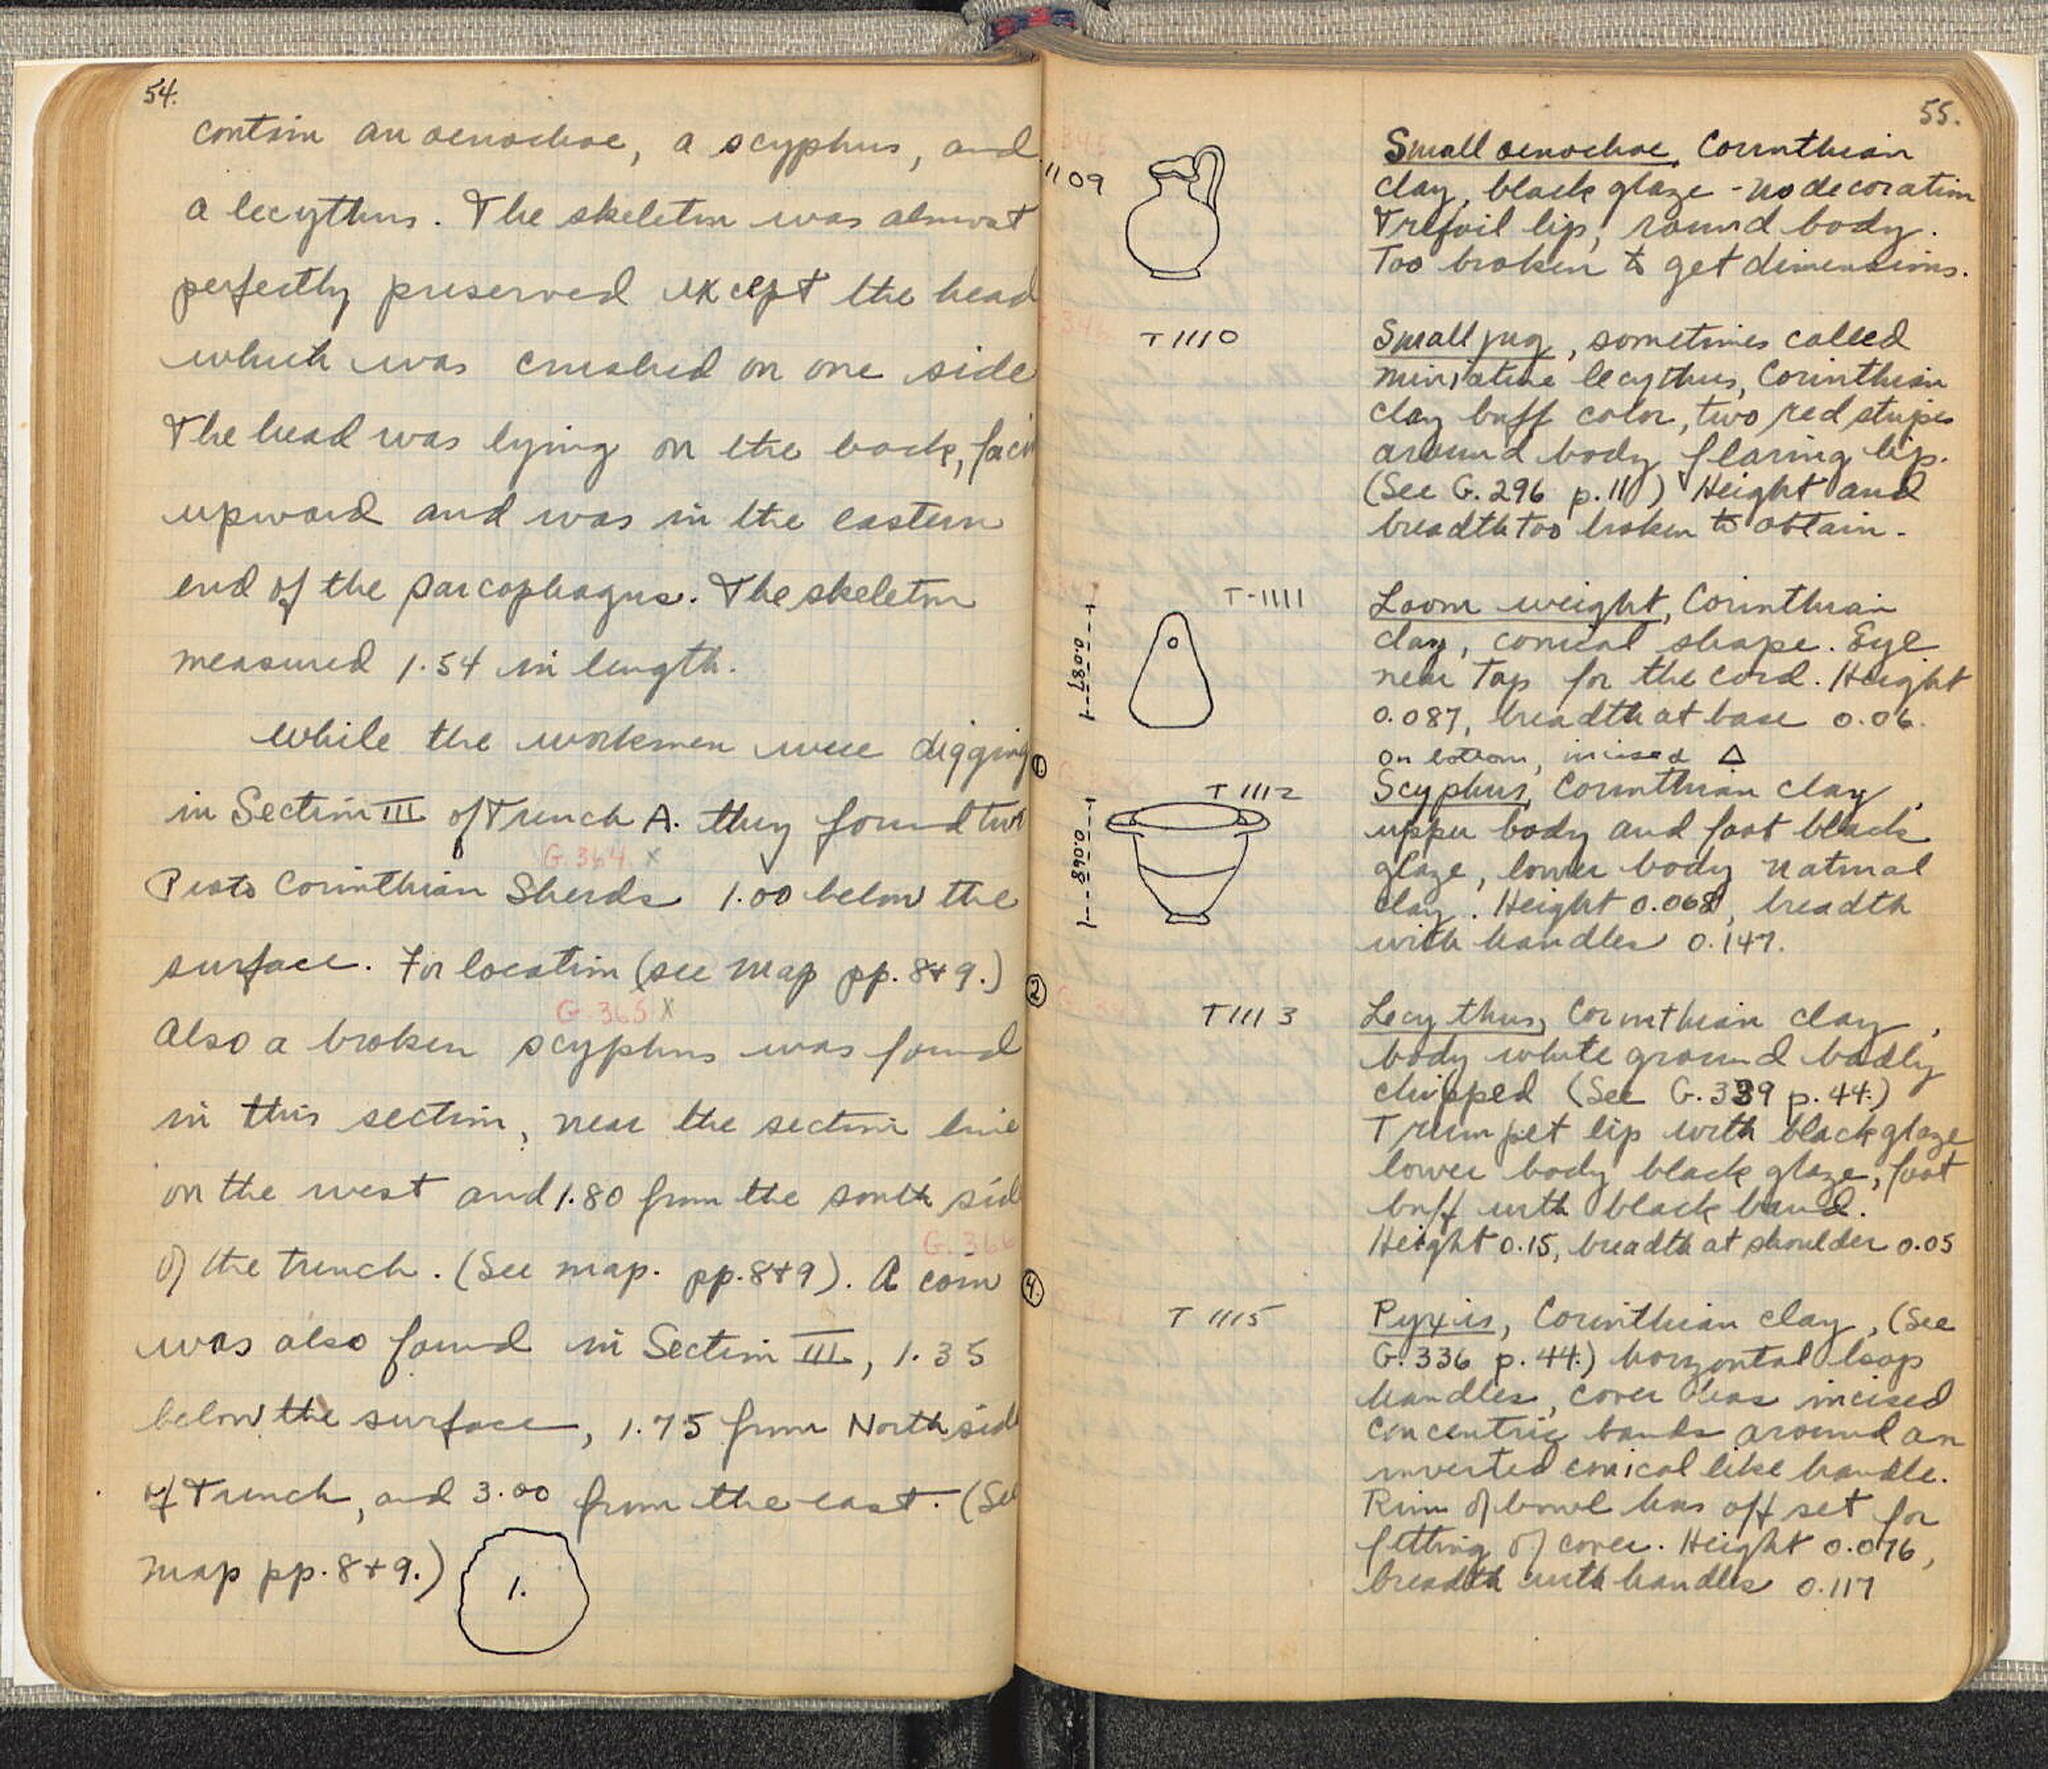 54.
contain an oenochoe, a scyphus, and
a lecythus. The skeleton was almost
perfectly preserved except the head
which was crushed on one side
The head was lying on the back, facin
upward and was in the eastern
end of the sarcophagus. The skeleton
measured 1.54 in length.
While the workmen were digging
in Section III of Trench A. they found two
G. 364. x
Proto Corinthian Sherds 1.00 below the
surface. For location (see map pp. 8+9.)
G. 365 X
Also a broken scyphus was found
in this section, near the section line
on the west and 1.80 from the south sid
G. 366
of the trench. (See map. pp. 8+9). A coin
was also found in Section III, 1.35
below the surface, 1.75 from North side
of Trench, and 3.00 from the east. (See
map pp. 8+9.)
1.
55.
1109
Small oenochoe, Corinthian
clay, black glaze - no decoration
Trefoil lip, round body.
Too broken to get dimensions.
T 1110
Small jug, sometimes called
miniature lecythus, Corinthian
clay buff color, two red stripes
around body flaring lip.
(See G. 296 p. 11) Height and
breadth too broken to obtain.
T-1111
0.087
Loom weight, Corinthian
clay, conical shape. Eye
near Top for the cord. Height
0.087, breadth at base 0.06.
on bottom, incised Δ
1.
T 1112
0.068
Scyphus, Corinthian clay,
upper body and foot black
glaze, lower body natural
clay. Height 0.068, breadth
with handles 0.147.
2
T 1113
Lecythus, Corinthian clay,
body white ground badly
chipped (See G. 339 p. 44.)
Trumpet lip with black glaze
lower body black glaze, foot
buff with black band.
Height 0.15, breadth at shoulder 0.05
4.
T 1115
Pyxis, Corinthian clay, (See
G. 336 p. 44.) horizontal loop
handles, cover has incised
concentric bands around an
inverted conical like handle.
Rim of bowl has off set for
fitting of cover. Height 0.076,
breadth with handles 0.117